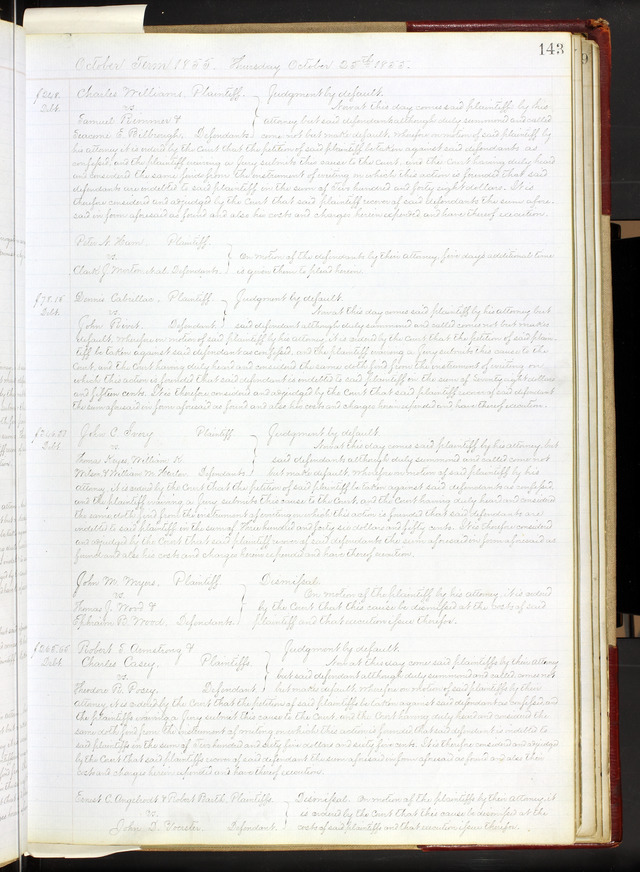 143
October Term 1855. Thursday October 25th 1855.
$248. Charles Williams. Plaintiff. Judgment by default.
Debt. vs. Now at this day comes said plaintiff by his
Samuel & attorney but said defendants although duly summoned and called
E. Defendants. come not but make default. Wherefore on motion of said plaintiff by
his attorney it is ordered by the Court that the petition of said plaintiff be taken against said defendants as
confessed, and the plaintiff waiving a Jury submits this cause to the Court, and the Court having duly heard
and considered the same finds from the instrument of writing on which this action is founded that said
defendants are indebted to said plaintiff in the sum of Two hundred and forty eight dollars. It is
therefore considered and adjudged by the Court that said plaintiff recover of said defendants the sum afore-
said in form aforesaid as found and also his costs and charges herein expended and have thereof execution.
Peter N. Ham. Plaintiff.
vs. On motion of the defendants by their attorney five days additional time
Clark J. et al. Defendants. is given them to plead herein.
$78.15 Dennis Plaintiff Judgment by default.
Debt. vs. Now at this day comes said plaintiff by his attorney but
John Defendant. said defendant although duly summoned and called comes not but makes
default. Wherefore on motion of said plaintiff by his attorney, it is ordered by the Court that the petition of said plain-
tiff be taken against said defendant as confessed, and the plaintiff waiving a Jury submits this cause to the
Court, and the Court having duly heard and considered the same doth find from the instrument of writing on
which this action is founded that said defendant is indebted to said plaintiff in the sum of Seventy eight dollars
and fifteen cents. It is therefore considered and adjudged by the Court that said plaintiff recover of said defendant
the sum aforesaid in form aforesaid as found and also his costs and charges herein expended and have thereof execution.
John C. Ivory Plaintiff Judgment by default.
Debt. vs. Now at this day comes said plaintiff by his attorney, but
Thomas William H. said defendants although duly summoned and called come not
Wilson & William M. Defendants. but make default. Wherefore on motion of said plaintiff by his
attorney, it is ordered by the Court that the petition of said plaintiff be taken against said defendants as confessed,
and the plaintiff waiving a Jury submits this cause to the Court, and the Court having duly heard and considered
the same doth find from the instrument of writing on which this action is founded that said defendants are
indebted to said plaintiff in the sum of Three hundred and forty six dollars and fifty cents. It is therefore considered
and adjudged by the Court that said plaintiff recover of said defendants the sum aforesaid in form aforesaid as
found and also his costs and charges herein expended and have thereof execution.
John M. Myers. Plaintiff Dismissal
vs. On motion of the plaintiff by his attorney, it is ordered
Thomas J. Wood & by the Court that this cause be dismissed at the costs of said
Ephraim B. Wood. Defendants. plaintiff and that execution issue therefor.
$265.65 Robert E. Armstrong & Judgment by default.
Debt. Charles Casey. Plaintiffs. Now at this day come said plaintiffs by their attorney
vs. but said defendant although duly summoned and called comes not
Theodore B. Posey. Defendant. but makes default. Wherefore on motion of said plaintiffs by their
attorney, it is ordered by the Court that the petition of said plaintiffs be taken against said defendant as confessed, and
the plaintiffs waiving a Jury submit this cause to the Court, and the Court having duly heard and considered the
same doth find from the instrument of writing on which this action is founded that said defendant is indebted to
said plaintiffs in the sum of Two hundred and sixty five dollars and sixty five cents. It is therefore considered and adjudged
by the Court that said plaintiffs recover of said defendant the sum aforesaid in form aforesaid as found and also their
costs and charges herein expended and have thereof execution.
Ernest C. Angelrodt & Robert Barth. Plaintiffs. Dismissal. On motion of the plaintiffs by their attorney, it
vs. is ordered by the Court that this cause be dismissed at the
John D. Defendant. costs of said plaintiffs and that execution issue therefor.